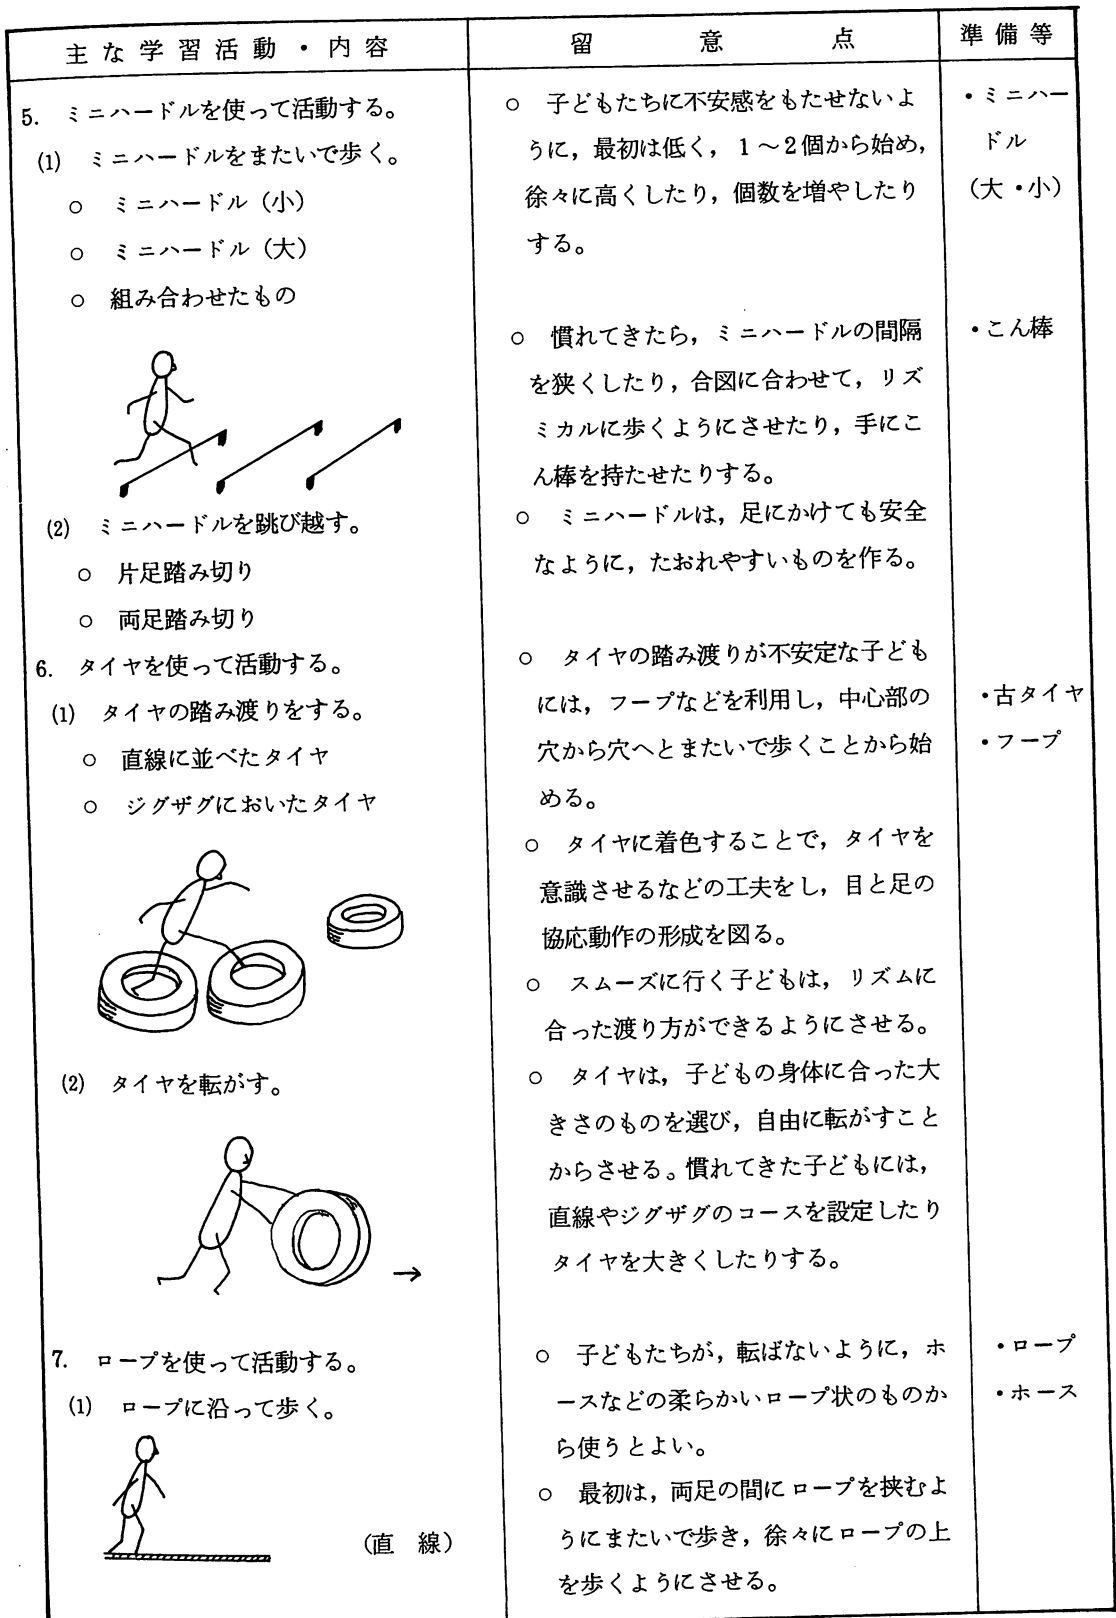 主な学習活動・内容
留意点
準備等
5. ミニハードルを使って活動する。
(1) ミニハードルをまたいで歩く。
○ ミニハードル（小）
○ ミニハードル（大）
○ 組み合わせたもの
(2) ミニハードルを跳び越す。
○ 片足踏み切り
○ 両足踏み切り
6. タイヤを使って活動する。
(1) タイヤの踏み渡りをする。
○ 直線に並べたタイヤ
○ ジグザグにおいたタイヤ
(2) タイヤを転がす。
→
7. ロープを使って活動する。
(1) ロープに沿って歩く。
（直 線）
○ 子どもたちに不安感をもたせないよ
うに，最初は低く，1～2個から始め，
徐々に高くしたり，個数を増やしたり
する。
○ 慣れてきたら，ミニハードルの間隔
を狭くしたり，合図に合わせて，リズ
ミカルに歩くようにさせたり，手にこ
ん棒を持たせたりする。
○ ミニハードルは，足にかけても安全
なように，たおれやすいものを作る。
○ タイヤの踏み渡りが不安定な子ども
には，フープなどを利用し，中心部の
穴から穴へとまたいで歩くことから始
める。
○ タイヤに着色することで，タイヤを
意識させるなどの工夫をし，目と足の
協応動作の形成を図る。
○ スムーズに行く子どもは，リズムに
合った渡り方ができるようにさせる。
○ タイヤは，子どもの身体に合った大
きさのものを選び，自由に転がすこと
からさせる。慣れてきた子どもには，
直線やジグザグのコースを設定したり
タイヤを大きくしたりする。
○ 子どもたちが，転ばないように，ホ
ースなどの柔らかいロープ状のものか
ら使うとよい。
○ 最初は，両足の間にロープを挟むよ
うにまたいで歩き，徐々にロープの上
を歩くようにさせる。
・ミニハー
ドル
（大・小）
・こん棒
・古タイヤ
・フープ
・ロープ
・ホース